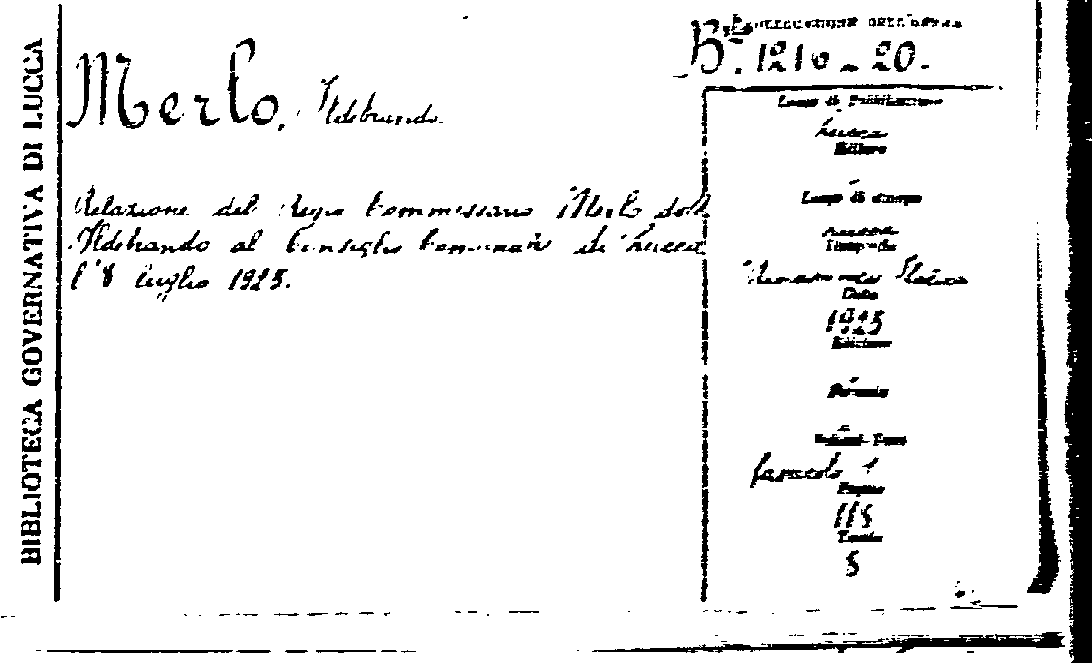 BIBLIOTECA GOVERNATIVA DI LUCCA
COLLOCAZIONE DELL'OPERA
Bª. 1216 - 20.
Merlo, Ildebrando.
Relazione del Regio Commissario Merlo dott.
Ildebrando al Consiglio Comunale di Lucca
l'8 luglio 1925.
Luogo di Pubblicazione
Lucca
Editore
Luogo di stampa
Lucca
Tipografo
Data
1925
Edizione
Formato
Volumi
fascicolo 1
Pagine
115
Tavole
8